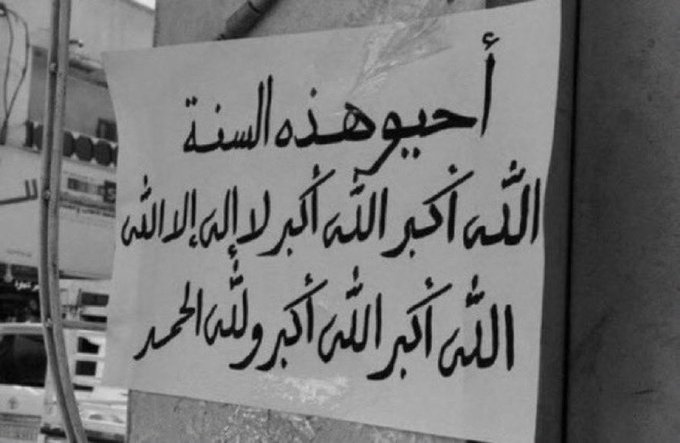 أحيو هذه السنة
الله أكبر الله أكبر لا إله إلا الله
الله أكبر الله أكبر ولله الحمد